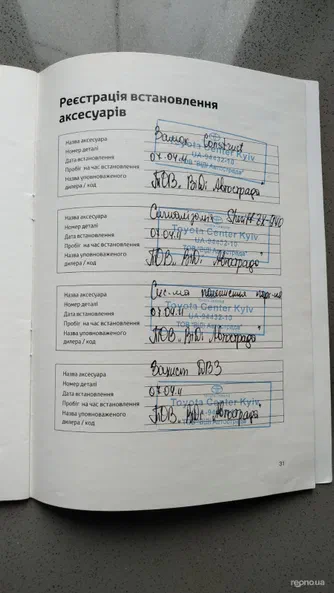 Реєстрація встановлення
аксесуарів
Назва аксесуара Замок Construct
Номер деталі
Дата встановлення 07.04.11
Пробіг на час встановлення
Назва уповноваженого
дилера / код ТОВ "ВіДі Автострада"
Toyota Center Kyiv
UA-94432-10
ТОВ "ВІДІ Автострада"
Назва аксесуара Сигналізація
Номер деталі
Дата встановлення 07.04.11
Пробіг на час встановлення
Назва уповноваженого
дилера / код ТОВ "ВіДі Автострада"
Toyota Center Kyiv
UA-94432-10
Назва аксесуара
Номер деталі
Дата встановлення 07.04.11
Пробіг на час встановлення
Назва уповноваженого
дилера / код ТОВ "ВіДі Автострада"
Toyota Center Kyiv
UA-94432-10
ТОВ "ВІДІ Автострада"
Назва аксесуара Захист ДВЗ
Номер деталі
Дата встановлення 07.04.11
Пробіг на час встановлення
Назва уповноваженого
дилера / код ТОВ "ВіДі Автострада"
Toyota Center Kyiv
31
repno.ua